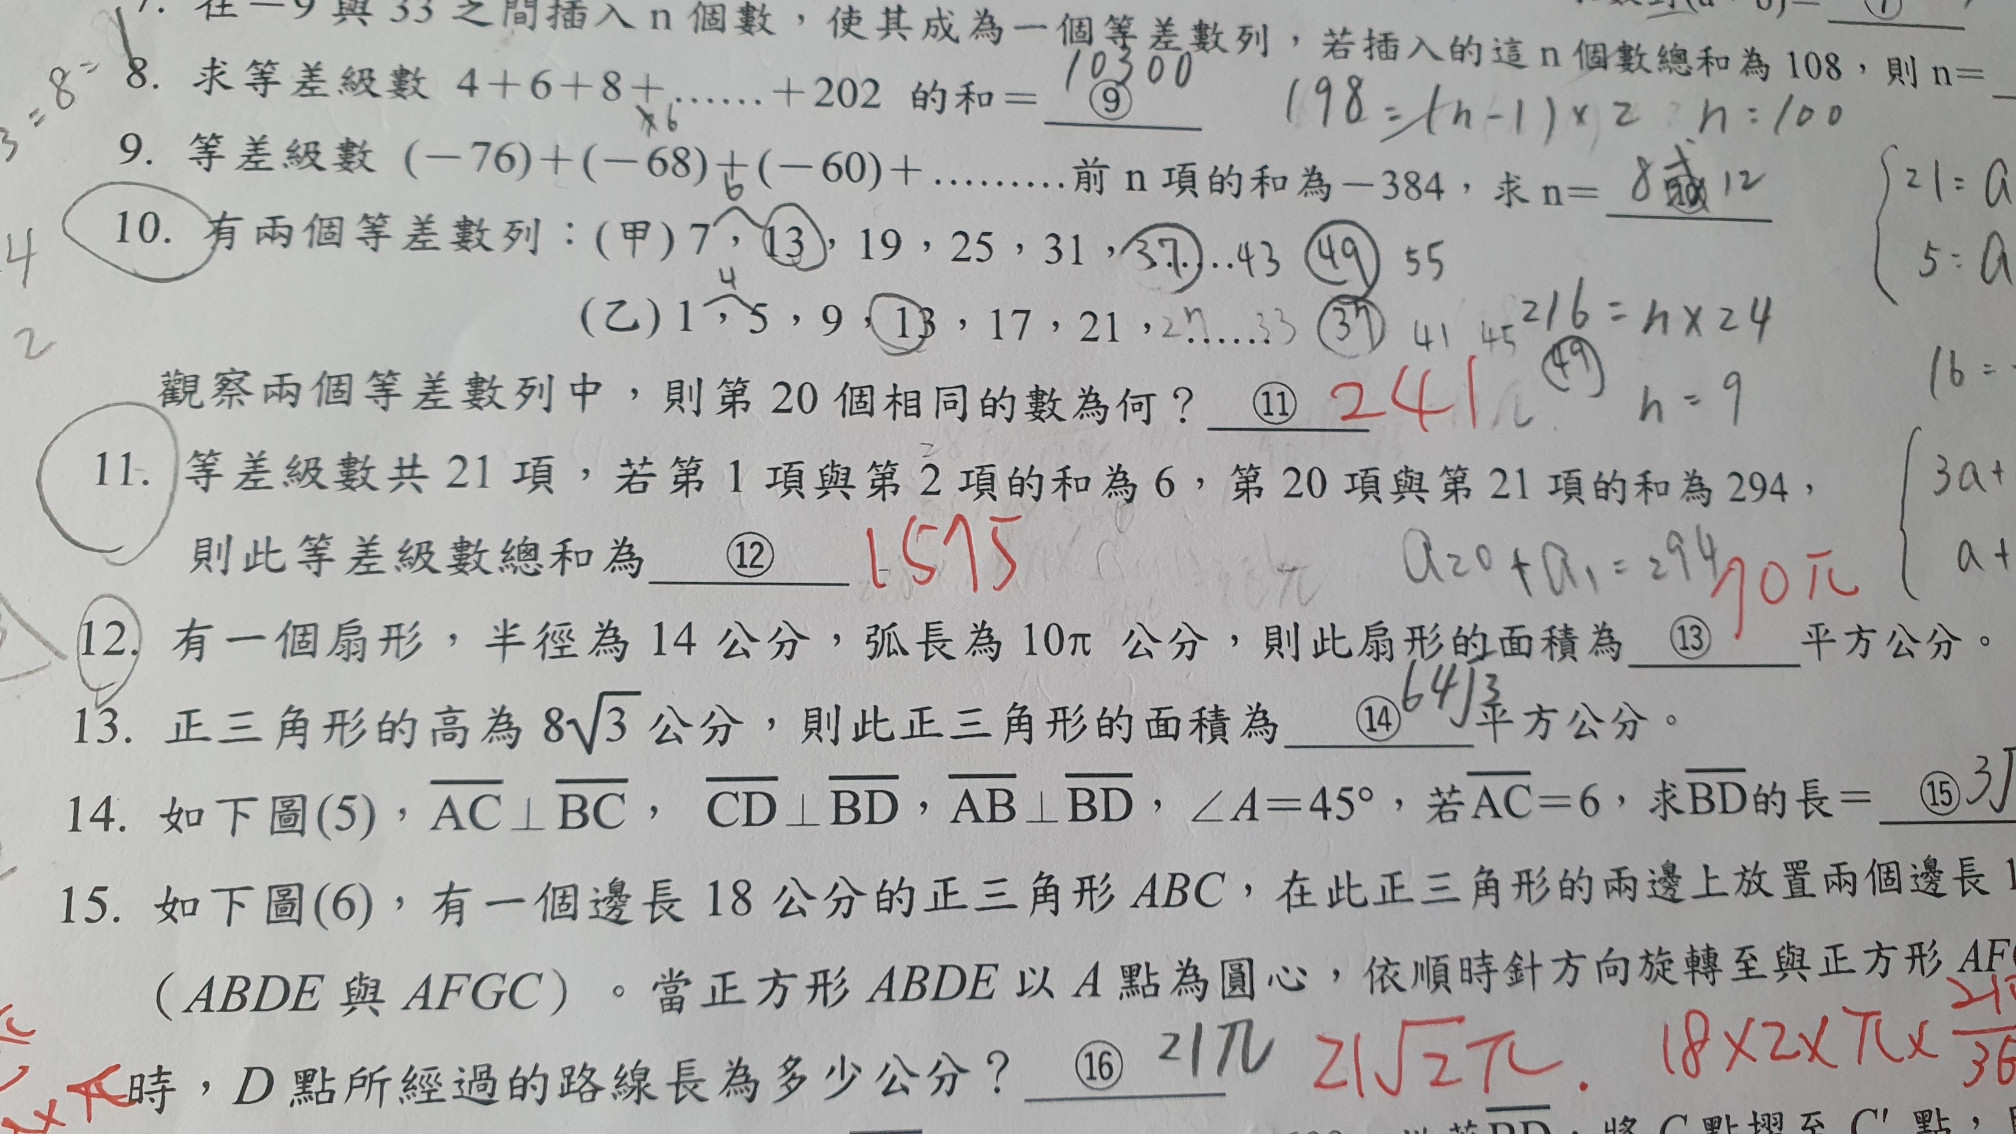 7. 在－9 與 33 之間插入 n 個數，使其成為一個等差數列，若插入的這 n 個數總和為 108，則 n=
3=8=
8. 求等差級數 4+6+8+……+202 的和= ⑨ 10300
198=(n-1)×2 n=100
×6
9. 等差級數 (－76)+(－68)+(－60)+………前 n 項的和為－384，求 n= 8或12
21=a
5=a
6
10. 有兩個等差數列：(甲) 7，13，19，25，31，37……43 49 55
4
(乙) 1，5，9，13，17，21，……33 37 41 45 49
216=n×24
n=9
16=
觀察兩個等差數列中，則第 20 個相同的數為何？ ⑪ 241
11. 等差級數共 21 項，若第 1 項與第 2 項的和為 6，第 20 項與第 21 項的和為 294，
3a+
則此等差級數總和為 ⑫ 1575
a20+a1=294
a+
12. 有一個扇形，半徑為 14 公分，弧長為 10π 公分，則此扇形的面積為 ⑬ 70π 平方公分。
13. 正三角形的高為 8√3 公分，則此正三角形的面積為 ⑭ 64√3 平方公分。
14. 如下圖(5)，AC⊥BC， CD⊥BD，AB⊥BD，∠A=45°，若AC=6，求BD的長= ⑮ 3√
15. 如下圖(6)，有一個邊長 18 公分的正三角形 ABC，在此正三角形的兩邊上放置兩個邊長 1
（ABDE 與 AFGC）。當正方形 ABDE 以 A 點為圓心，依順時針方向旋轉至與正方形 AF
時，D 點所經過的路線長為多少公分？ ⑯ 21π 21√2π. 18×2×π×210/36